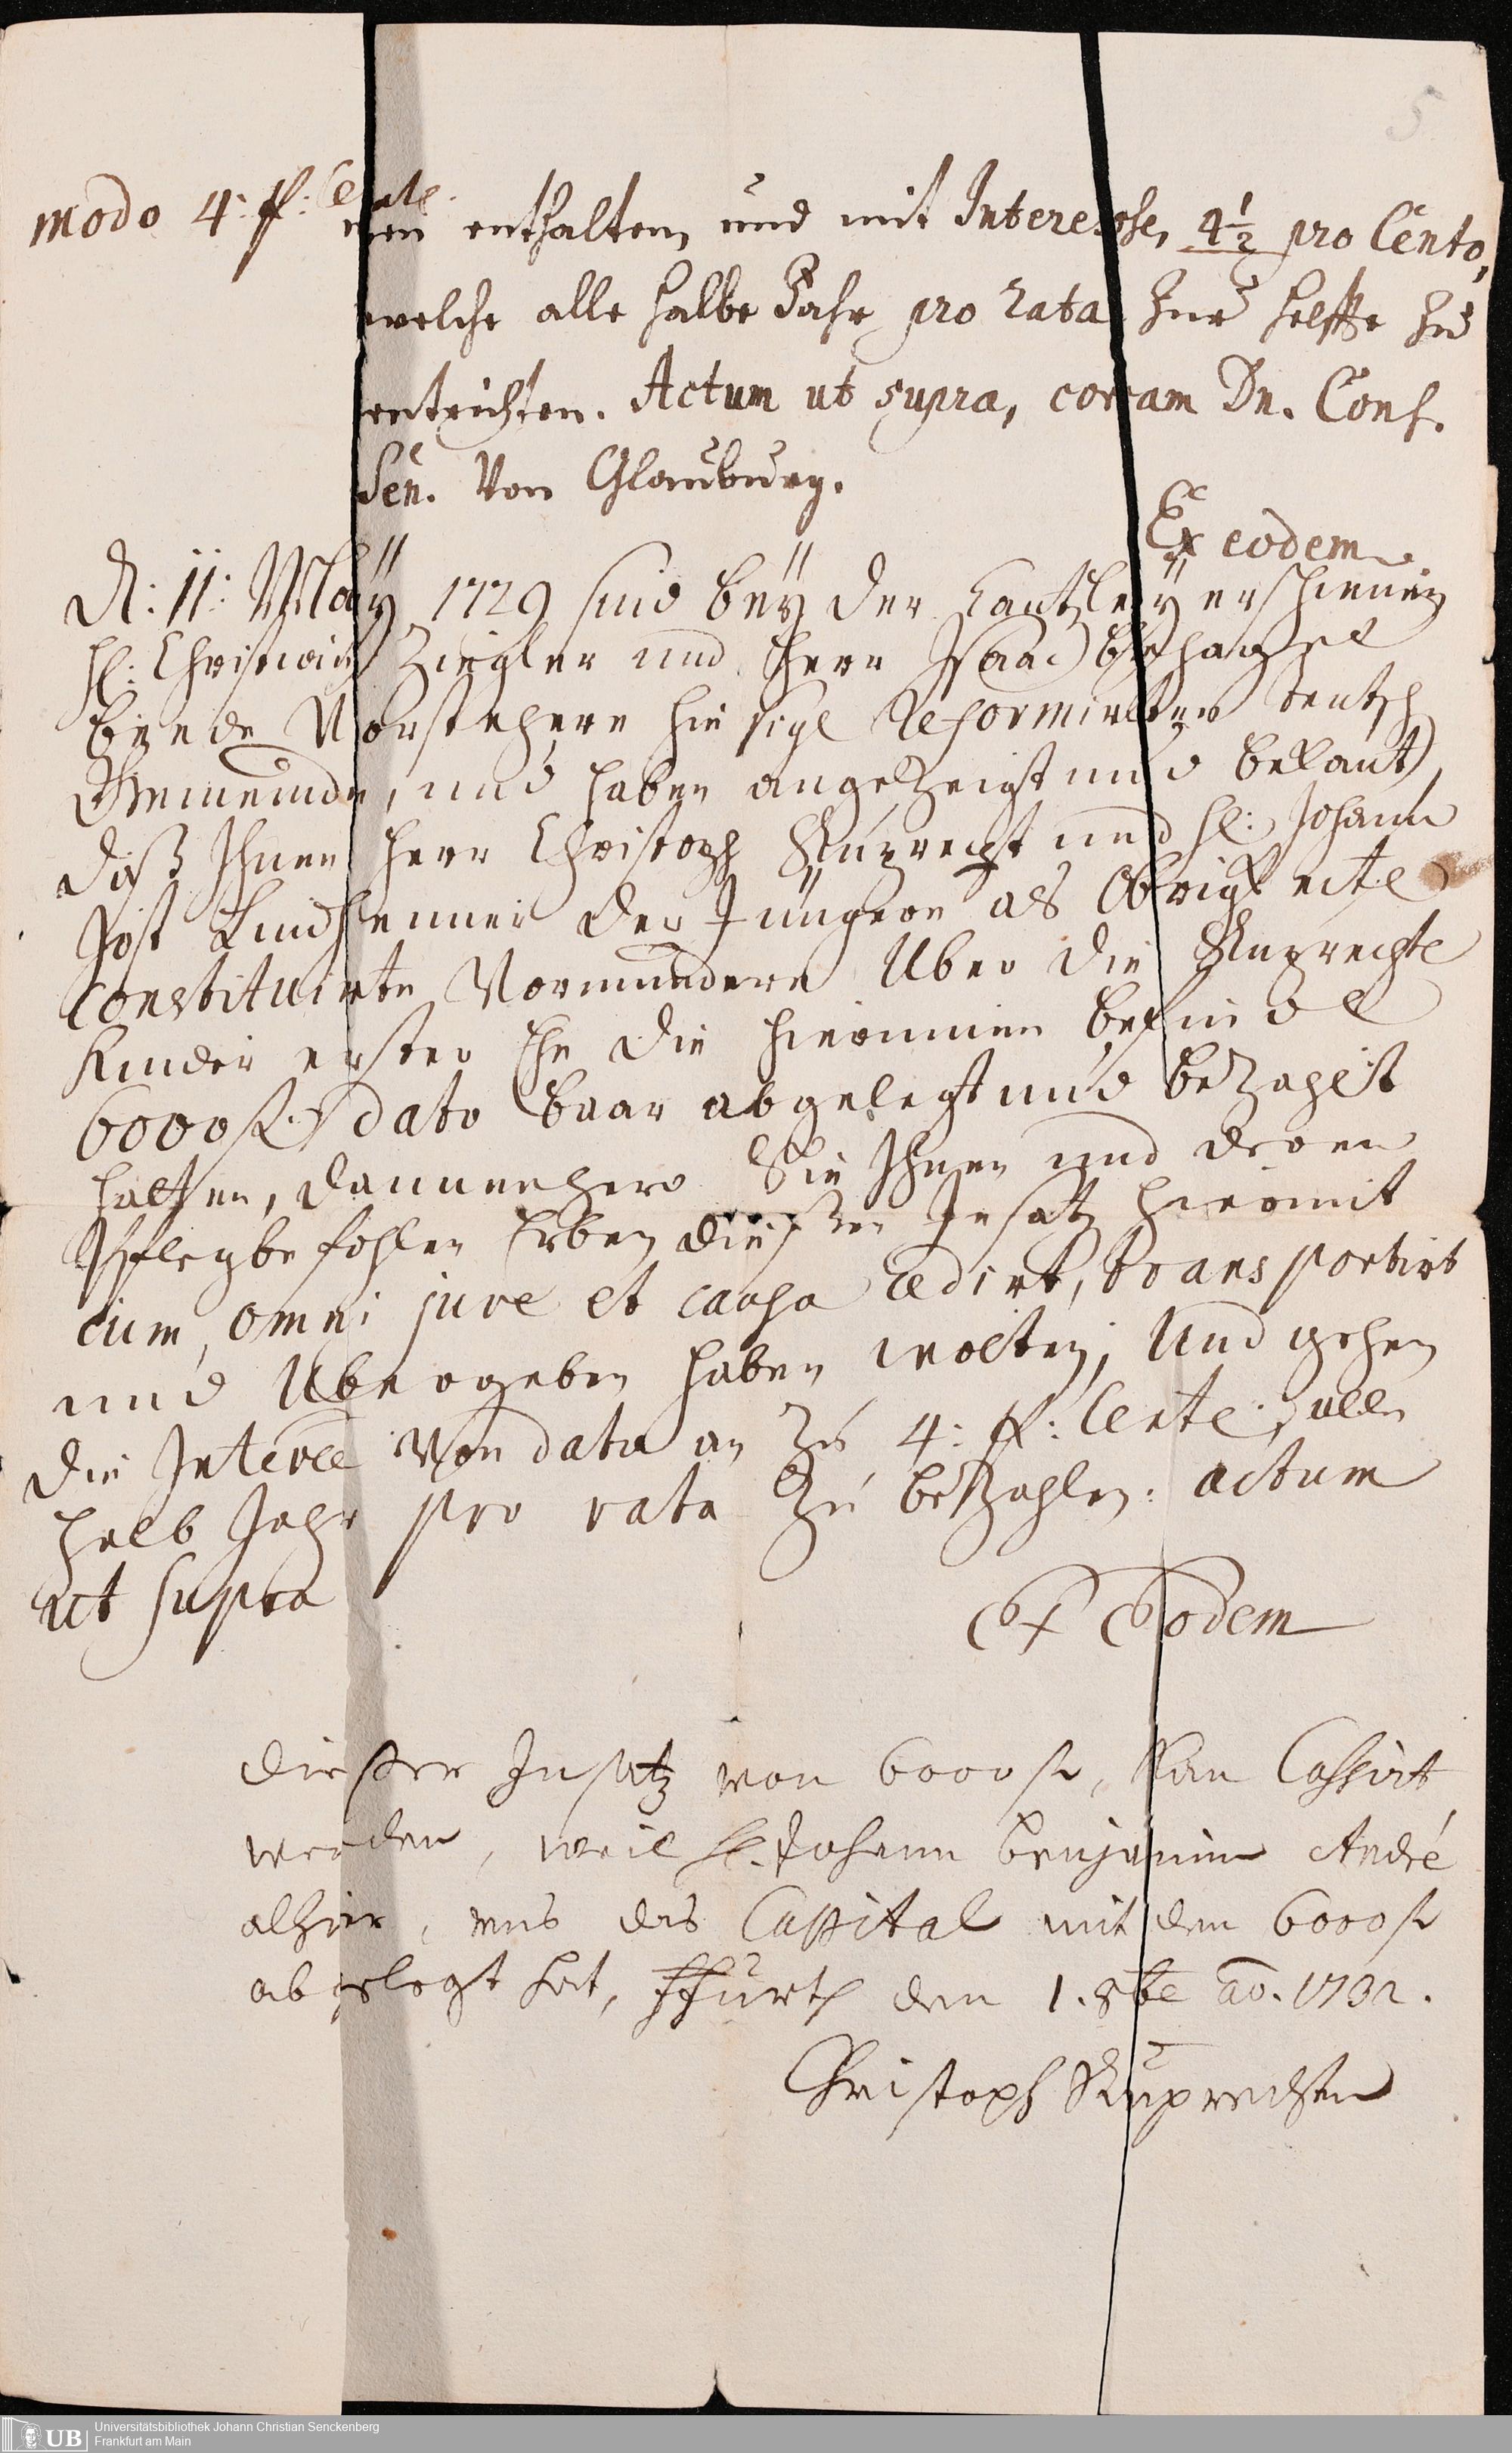 5
modo 4: p: Cente.
nen enthalten, und mit Interesse, 4½ pro Cento,
welche alle halbe Jahr pro rata zur helffte zu
entrichten. Actum ut supra, coram Dn. Cons.
Sen. von Glauburg.
Ex eodem
D: 11: Maÿ 1729 sind beÿ der Cantzleÿ erschienen
H: Christian Ziegler und Herr Isaac Behaghel
beyde Vorstehere hiesige Reformirter teutsch
Gemeinde, und haben angezeigt und bekant,
daß Ihnen Herr Christoph Ruprecht und H: Johann
Jost Lindheimer der Jüngere als Obrigkeitl
constituirte Vormundere Uber die Ruprechte
Kinder erster Ehe die hierinnen befindl
6000 fl dato baar abgelegt und bezahlt
hätten, dannenhero Sie Ihnen und deren
Pflegbefohlen Erben dießen Insatz hiermit
cum omni jure et causa cedirt, transportirt
und Ubergeben haben wolten; Und gehen
die Interee Von dato an zu 4: p: Cente; alle
halb Jahr pro rata zu bezahlen: actum
ut supra
Ex Eodem
Dießer Insatz von 6000 fl, kan Cassirt
werden, weil H. Johann Benjamin André
alhier, uns das Cappital mit den 6000 fl
abgelegt hat, Ffurth den 1. 8bre ao. 1732.
Christoph Ruprecht
UB
Universitätsbibliothek Johann Christian Senckenberg
Frankfurt am Main